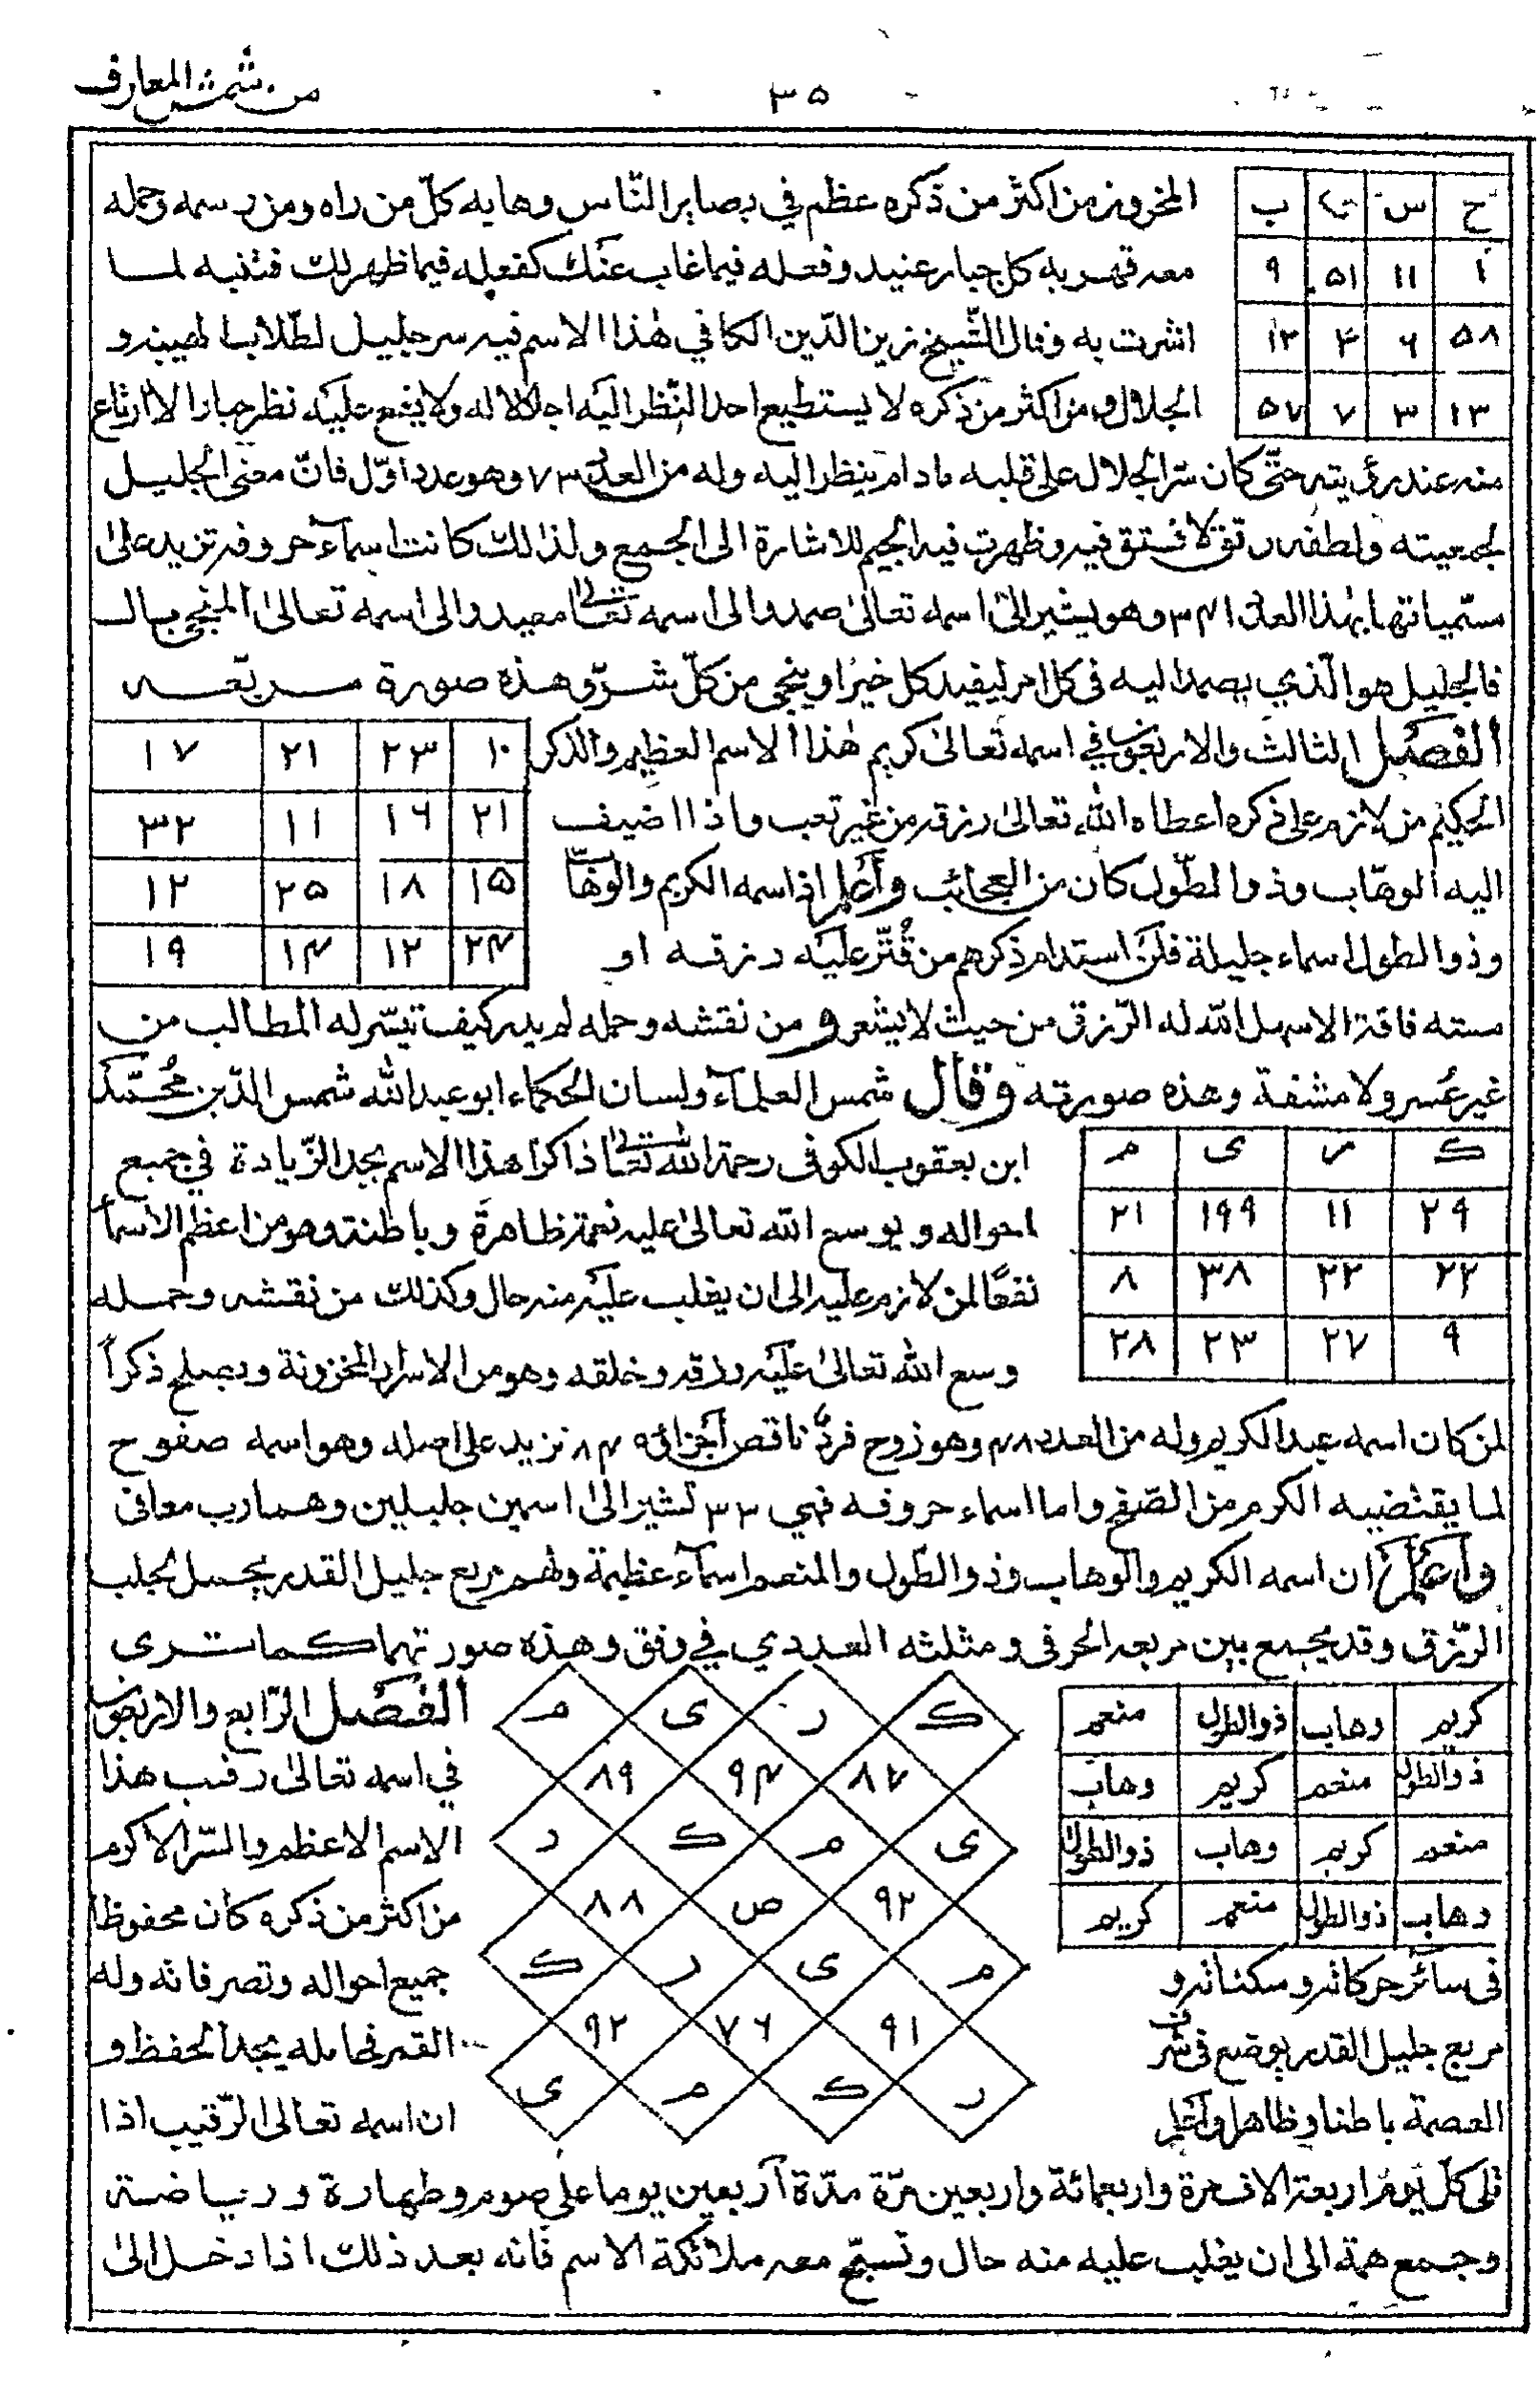 من شمس المعارف
٣٥
المخزون من اكثر من ذكره عظم في بصاير النّاس وهابه كلّ من راه ومن رسمه وحمله
ح س ي ب
معه قهر به كل جبار عنيد وفعله فيما غاب عنك كفعله فيما ظهر لك فتنبه لما
١ ١١ ٥١ ٩
اشرت به وقال الشّيخ زين الدّين الكافي هٰذا الاسم فيه سر جليل لطلاب الهيبة و
٥٨ ٦ ٤ ١٢
الجلال ومن اكثر من ذكره لا يستطيع احد النّظر اليه اجلالا له ولا يقع عليه نظر جبار الا ارتاع
١٣ ٣ ٧ ٥٧
منه عند رؤيته حتّى كان سّر الجلال على قلبه مادام ينظر اليه وله من العدد ٧٣ وهو عدد اوّل فانّ معنى الجليل
لجمعيته ولطفه رتق لا فتق فيه وظهرت فيه الجيم للاشارة الى الجمع ولذلك كانت اسمآء حروفه تزيد على
مسّمياتها بهٰذا العدد ٣٤١ وهو يشير الىٰ اسمه تعالىٰ صمد والى اسمه تعالىٰ معيد والى اسمه تعالىٰ المنجى
فالجليل هو الّذي يصمد اليه فى كل امر ليفيد كل خير او ينجى من كلّ شرّ وهذه صورة مربعه
الفصل الثالث والاربعون في اسمه تعالىٰ كريم هٰذا الاسم العظيم والذكر
١٠ ٢٣ ٢١ ١٧
الحكيم من لازم على ذكره اعطاه الله تعالىٰ رزقه من غير تعب واذا اضيف
٢١ ١٦ ١١ ٣٢
اليه الوهّاب وذو الطّول كان من العجائب وأعلم اذ اسمه الكريم والوهّاب
١٥ ١٨ ٢٥ ١٢
وذو الطول اسماء جليلة فلن استدام ذكرهم من قُتّر عليه رزقه او
٢٤ ١٢ ١٤ ١٩
مسته فاقة الا سهل الله له الرّزق من حيث لا يشعر ومن نقشه وحمله لم يدر كيف تيسّر له المطالب من
غير عُسر ولا مشقة وهذه صورته وقال شمس العلمآء ولسان الحكماء ابو عبد الله شمس الدّين محُمّد
ك ر ى م
ابن يعقوب الكوفى رحمة الله تعالىٰ ذاكر هذا الاسم يجد الزّيادة في جميع
٢٩ ١١ ١٩٩ ٢١
احواله ويوسع الله تعالىٰ عليه نعمة ظاهرة وباطنة وهو من اعظم الاسمآ
٢٢ ٢٢ ٣٨ ٨
نفعًا لمن لازم عليه الى ان يغلب عليه منه حال وكذلك من نقشه وحمله
٩ ٢٧ ٢٣ ٢٨
وسع الله تعالىٰ عليه رزقه وخلقه وهو من الاسرار المخزونة ويصلح ذكراً
لمن كان اسمه عبد الكريم وله من العدد وهو زوج فردّ ناقص اجزائه تزيد على اصله وهو اسمه صفوح
لما يقتضيه الكرم من الصّفح واما اسماء حروفه فهي ٣٣ تشير الىٰ اسمين جليلين وهما رب معافى
وأعلم ان اسمه الكريم والوهاب وذو الطّول والمنعم اسمآء عظيمة ولهم مربع جليل القدر يجمل لجلب
الرّزق وقد يجمع بين مربعه الحرفى ومثلثه العددي في وفق وهذه صورتهما كما ترى
كريم وهاب ذو الطول منعم
ذو الطول منعم كريم وهاب
منعم كريم وهاب ذو الطول
وهاب ذو الطول منعم كريم
ك ر ى م
٨٧ ٩٤ ٨٩
ى م ك ر
٩٢ ص ٨٨
م ى ر ك
٩١ ٧٦ ٩٢
ر ك م ى
الفصل الرّابع والاربعون
في اسمه تعالىٰ رقيب هذا
الاسم الاعظم والسّر الاكرم
من اكثر من ذكره كان محفوظا
فى سائر حركاته وسكناته و جميع احواله وتصرفاته وله
مربع جليل القدر يوضع فى شرف القمر فحامله يجد الحفظ و
العصمة باطنا وظاهرا وأعلم ان اسمه تعالىٰ الرّقيب اذا
تلى كلّ يوم اربعة الاف مرة واربعمائة واربعين مرّة مدّة أربعين يوما على صوم وطهارة ورياضة
وجمع همة الى ان يغلب عليه منه حال وتسبّح معه ملائكة الاسم فانه بعد ذلك اذا دخل الىٰ